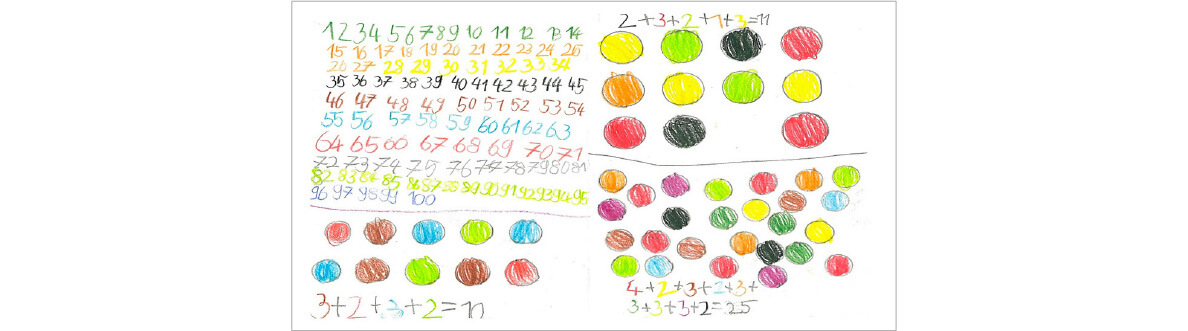 1 2 3 4 5 6 7 8 9 10 11 12 13 14
15 16 17 18 19 20 21 22 23 24 25
26 27 28 29 30 31 32 33 34
35 36 37 38 39 40 41 42 43 44 45
46 47 48 49 50 51 52 53 54
55 56 57 58 59 60 61 62 63
64 65 66 67 68 69 70 71
72 73 74 75 76 77 78 79 80 81
82 83 84 85 86 87 88 89 90 91 92 93 94 95
96 97 98 99 100
3+2+3+2=10
2+3+2+1+3=11
4+2+3+2+3+
3+3+3+2=25